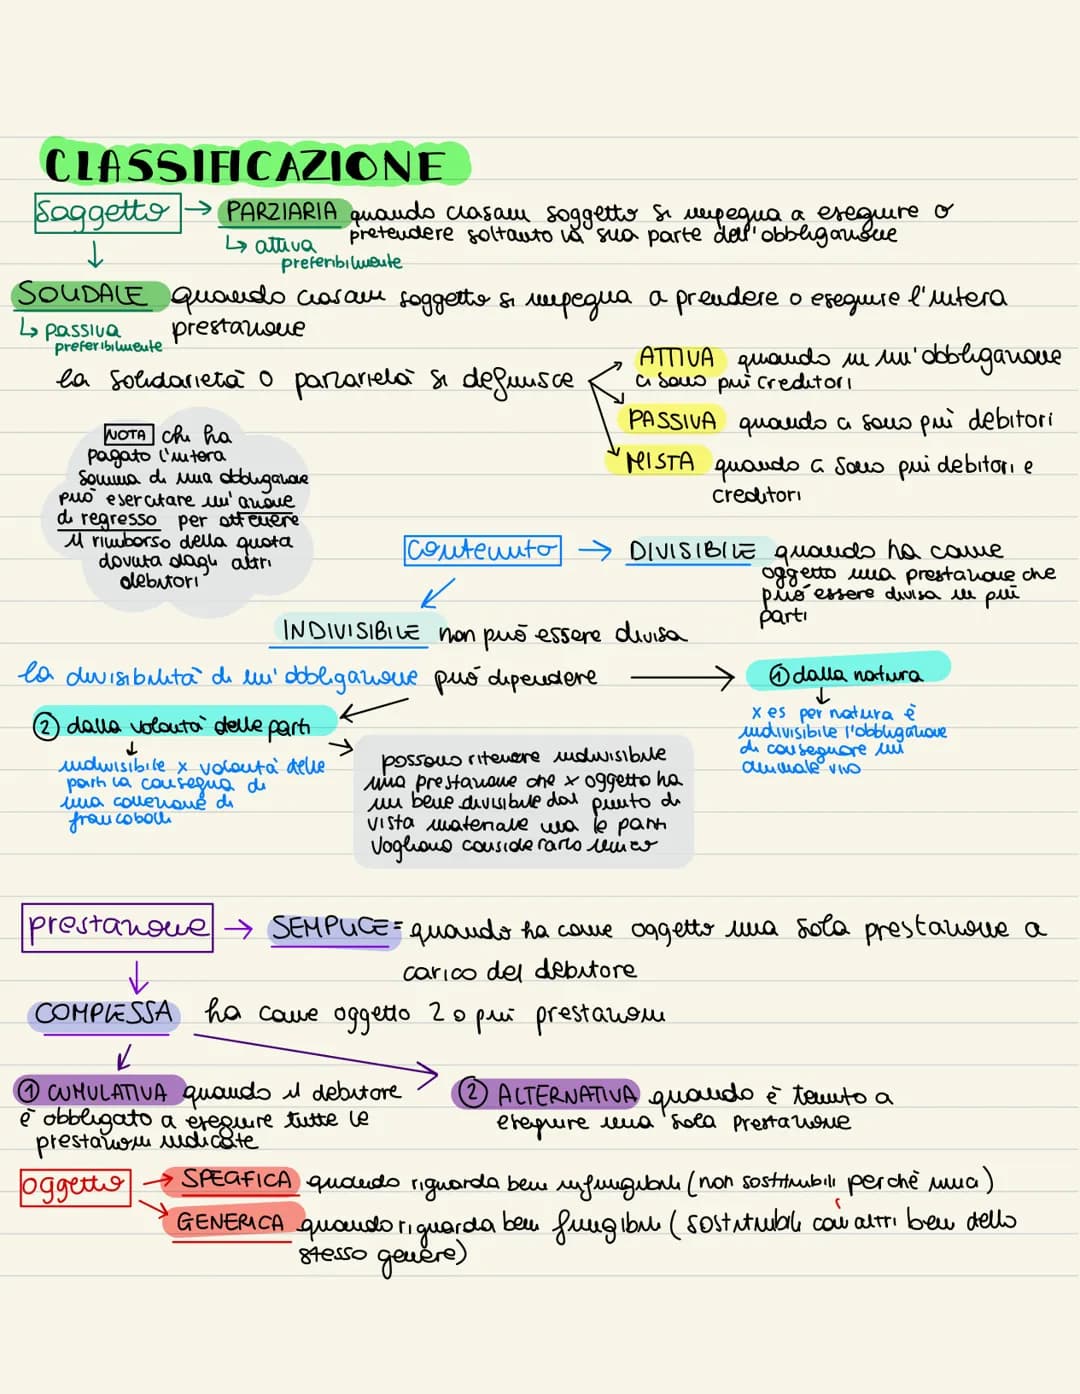 CLASSIFICAZIONE
Soggetto → PARZIARIA quando ciascun soggetto si impegna a eseguire o
pretendere soltanto la sua parte dell'obbligazione
↳ attiva
preferibilmente
SOLIDALE quando ciascun soggetto si impegna a prendere o eseguire l'intera
prestazione
↳ passiva
preferibilmente
la solidarietà o parziarietà si definisce
ATTIVA quando in un'obbligazione
ci sono più creditori
PASSIVA quando ci sono più debitori
MISTA quando ci sono più debitori e
creditori
NOTA chi ha
pagato l'intera
somma di una obbligazione
può esercitare un'azione
di regresso per ottenere
il rimborso della quota
dovuta dagli altri
debitori
contenuto → DIVISIBILE quando ha come
oggetto una prestazione che
può essere divisa in più
parti
INDIVISIBILE non può essere divisa
la divisibilità di un'obbligazione può dipendere → ① dalla natura
x es per natura è
indivisibile l'obbligazione
di consegnare un
animale vivo
② dalla volontà delle parti
indivisibile x volontà delle
parti la consegna di
una collezione di
francobolli
possono ritenere indivisibile
una prestazione che x oggetto ha
un bene divisibile dal punto di
vista materiale ma le parti
vogliono considerarlo unico
prestazione → SEMPLICE = quando ha come oggetto una sola prestazione a
carico del debitore
COMPLESSA ha come oggetto 2 o più prestazioni
① CUMULATIVA quando il debitore
è obbligato a eseguire tutte le
prestazioni indicate
② ALTERNATIVA quando è tenuto a
eseguire una sola prestazione
oggetto → SPECIFICA quando riguarda beni infungibili (non sostituibili perchè unici)
GENERICA quando riguarda beni fungibili (sostituibili con altri beni dello
stesso genere)